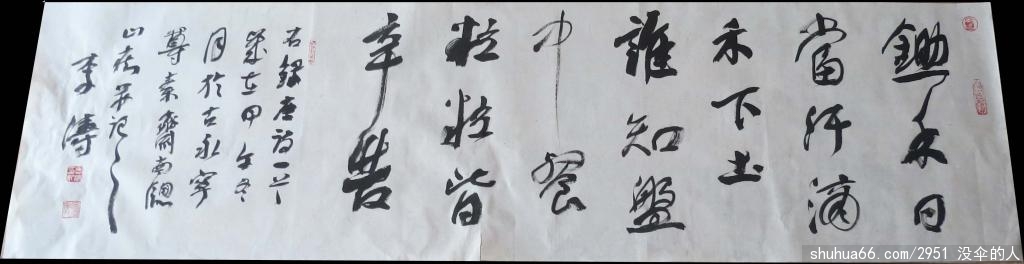 鋤禾日
當汗滴
禾下土
誰知盤
中餐
粒粒皆
辛苦
右録唐詩一首
歲在甲午冬
月於古永寧
尊素齋南窗
山房并记之
李濤
shuhua66.com/2951 没伞的人